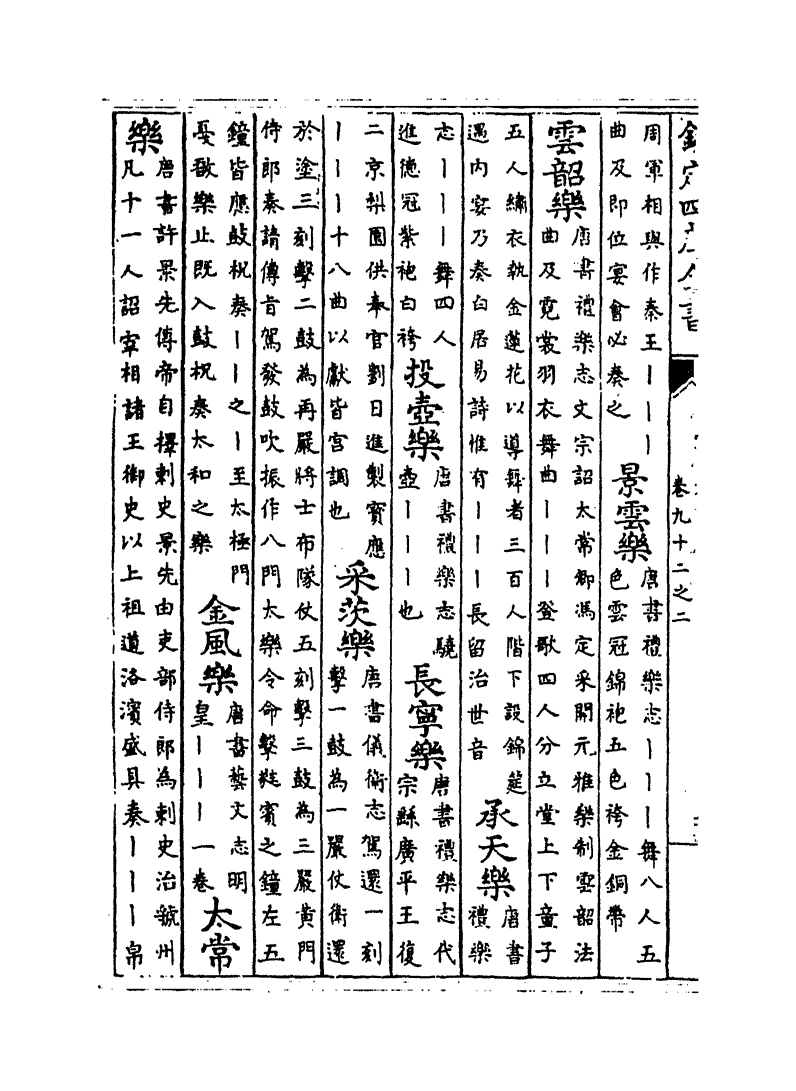 欽定四庫全書
卷九十二之二
周軍相與作秦王丨丨丨
曲及即位宴會必奏之
景雲樂
唐書禮樂志丨丨丨舞八人五
色雲冠錦袍五色袴金銅帶
雲韶樂
唐書禮樂志文宗詔太常卿馮定采開元雅樂制雲韶法
曲及霓裳羽衣舞曲丨丨丨登歌四人分立堂上下童子
五人繡衣執金蓮花以導舞者三百人階下設錦筵
遇内宴乃奏白居易詩惟有丨丨丨長留治世音
承天樂
唐書
禮樂
志丨丨丨舞四人
進德冠紫袍白袴
投壺樂
唐書禮樂志驍
壺丨丨丨也
長寧樂
唐書禮樂志代
宗繇廣平王復
二京梨園供奉官劉日進製寳應
丨丨丨十八曲以獻皆宫調也
采茨樂
唐書儀衛志駕還一刻
擊一鼓為一嚴仗衛還
於塗三刻擊二鼓為再嚴將士布隊仗五刻擊三鼓為三嚴黄門
侍郎奏請傳旨駕發鼓吹振作八門太樂令命擊蕤賓之鐘左五
鐘皆應鼓柷奏丨丨之丨至太極門
戞敔樂止既入鼓柷奏太和之樂
金風樂
唐書藝文志明
皇丨丨丨一卷
太常
樂
唐書許景先傳帝自擇刺史景先由吏部侍郎為刺史治虢州
凡十一人詔宰相諸王御史以上祖道洛濱盛具奏丨丨丨帛